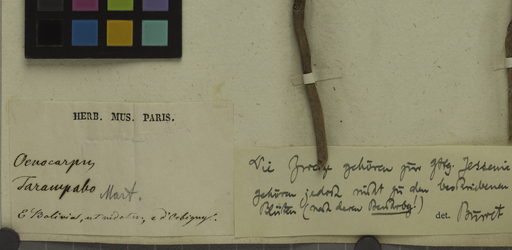 HERB. MUS. PARIS.
Oenocarpus
Tarampabo Mart.
E Bolivia, ut videtur, e d'Orbigny.
Die Zweige gehören zur Gttg. Jessenia
gehören jedoch nicht zu den beschriebenen
Blüten (nach deren Beschrbg!)
det. Burret